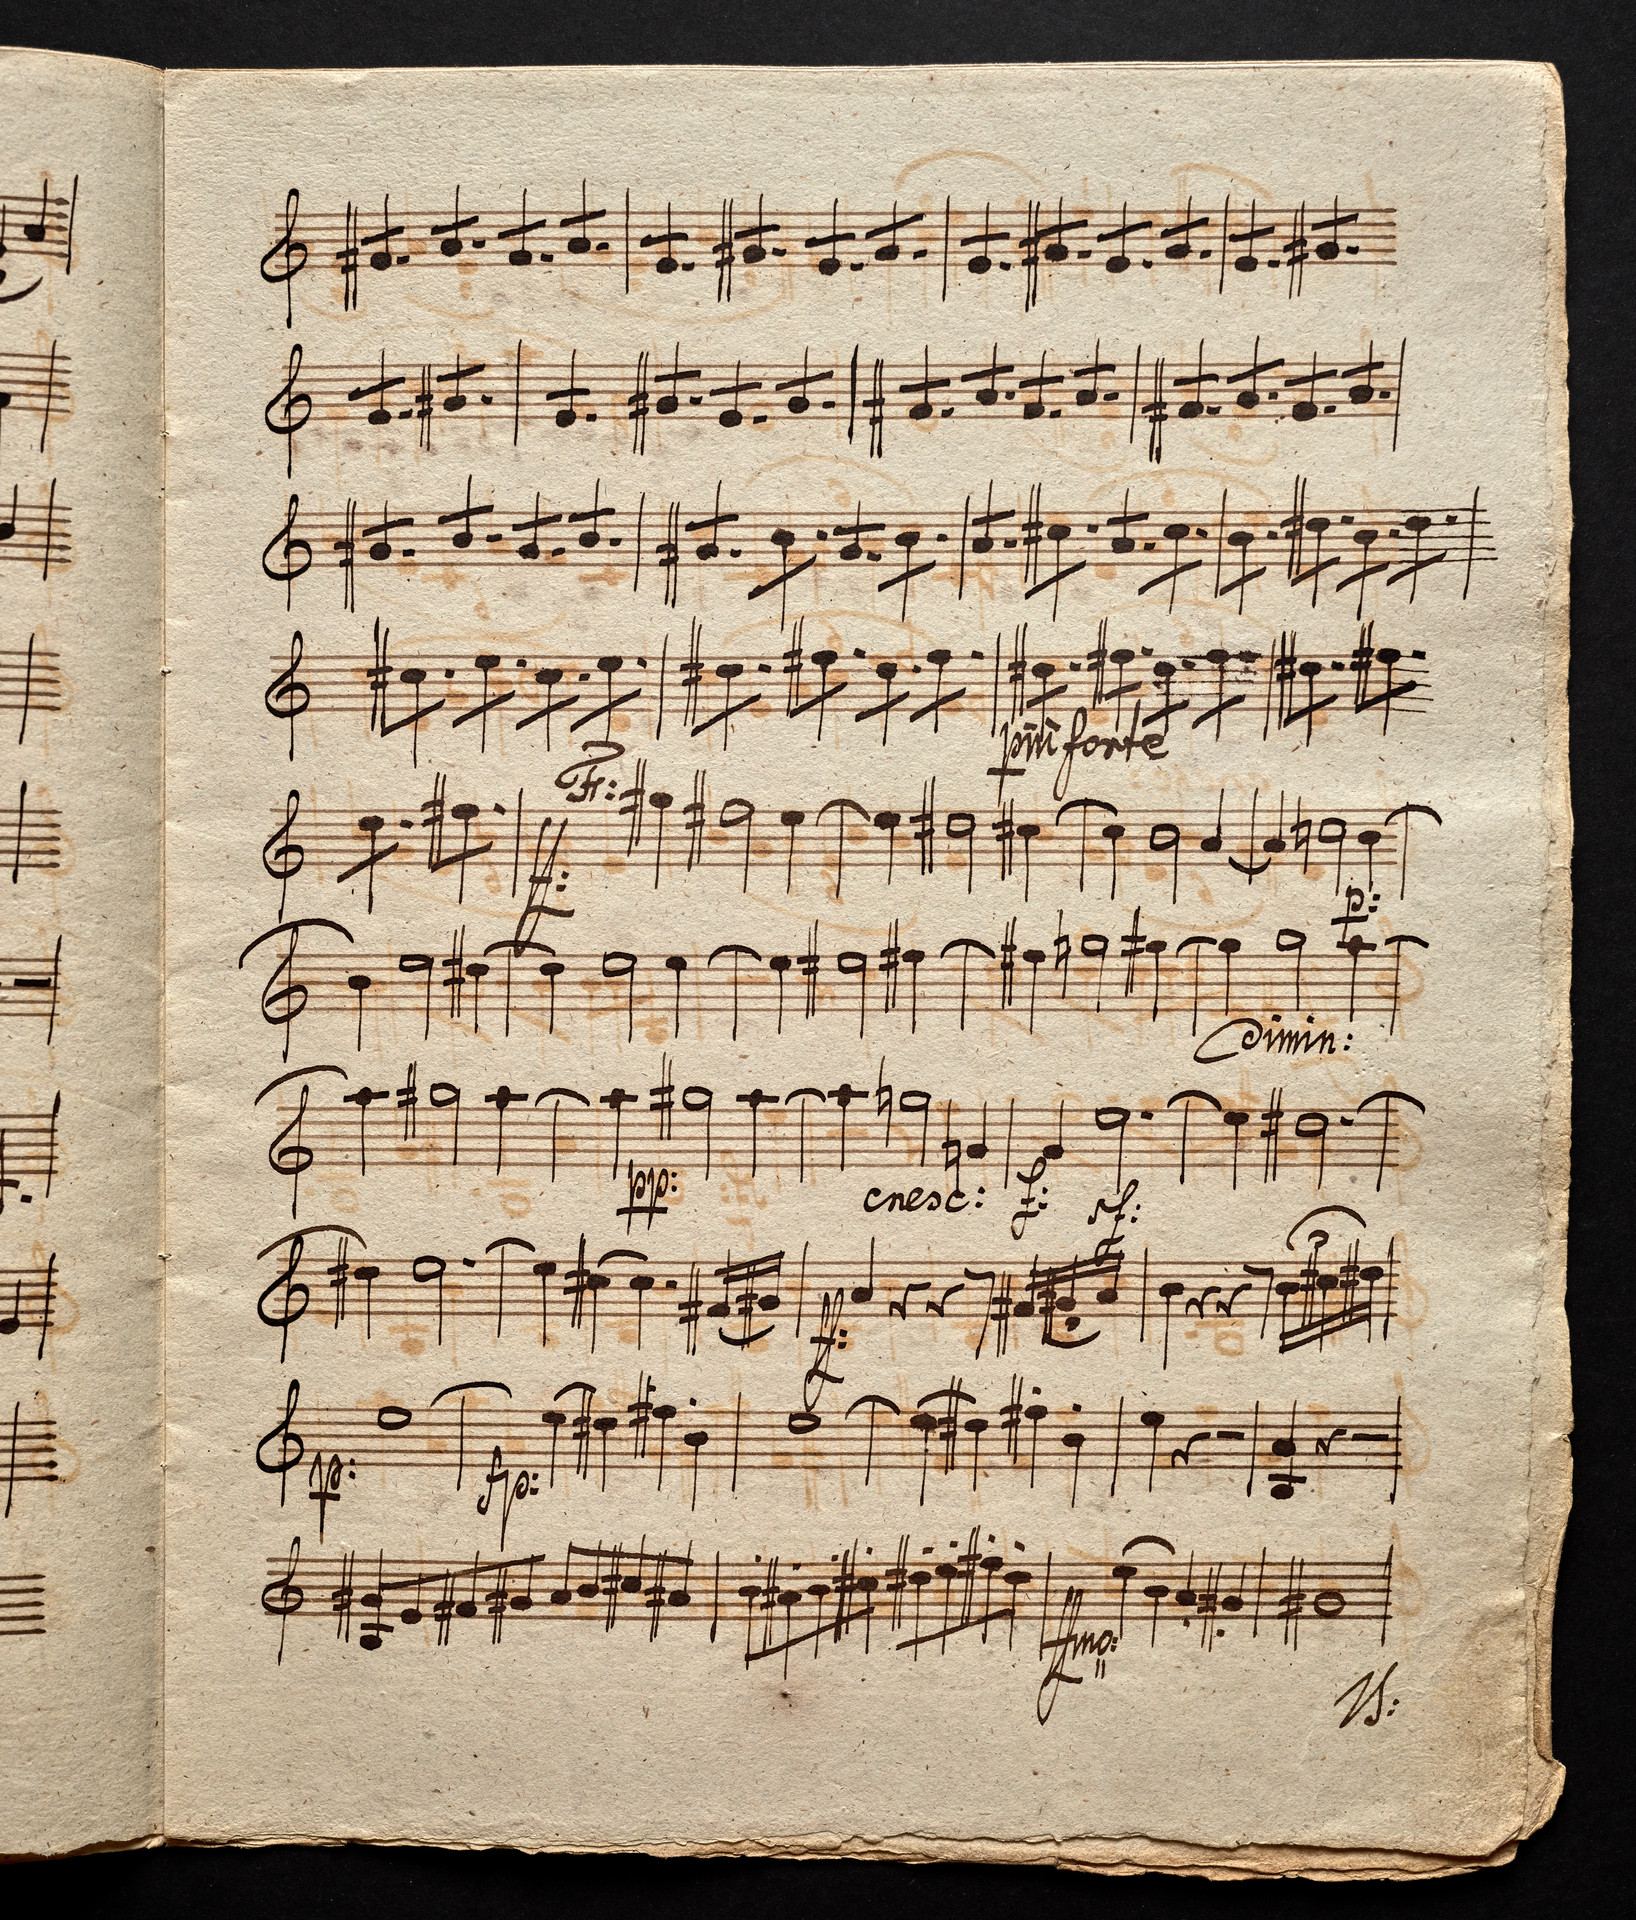 più forte
ff:
p:
Dimin:
pp: cresc: f: sf:
3
ff:
p: sfp:
ffmo:
VS: